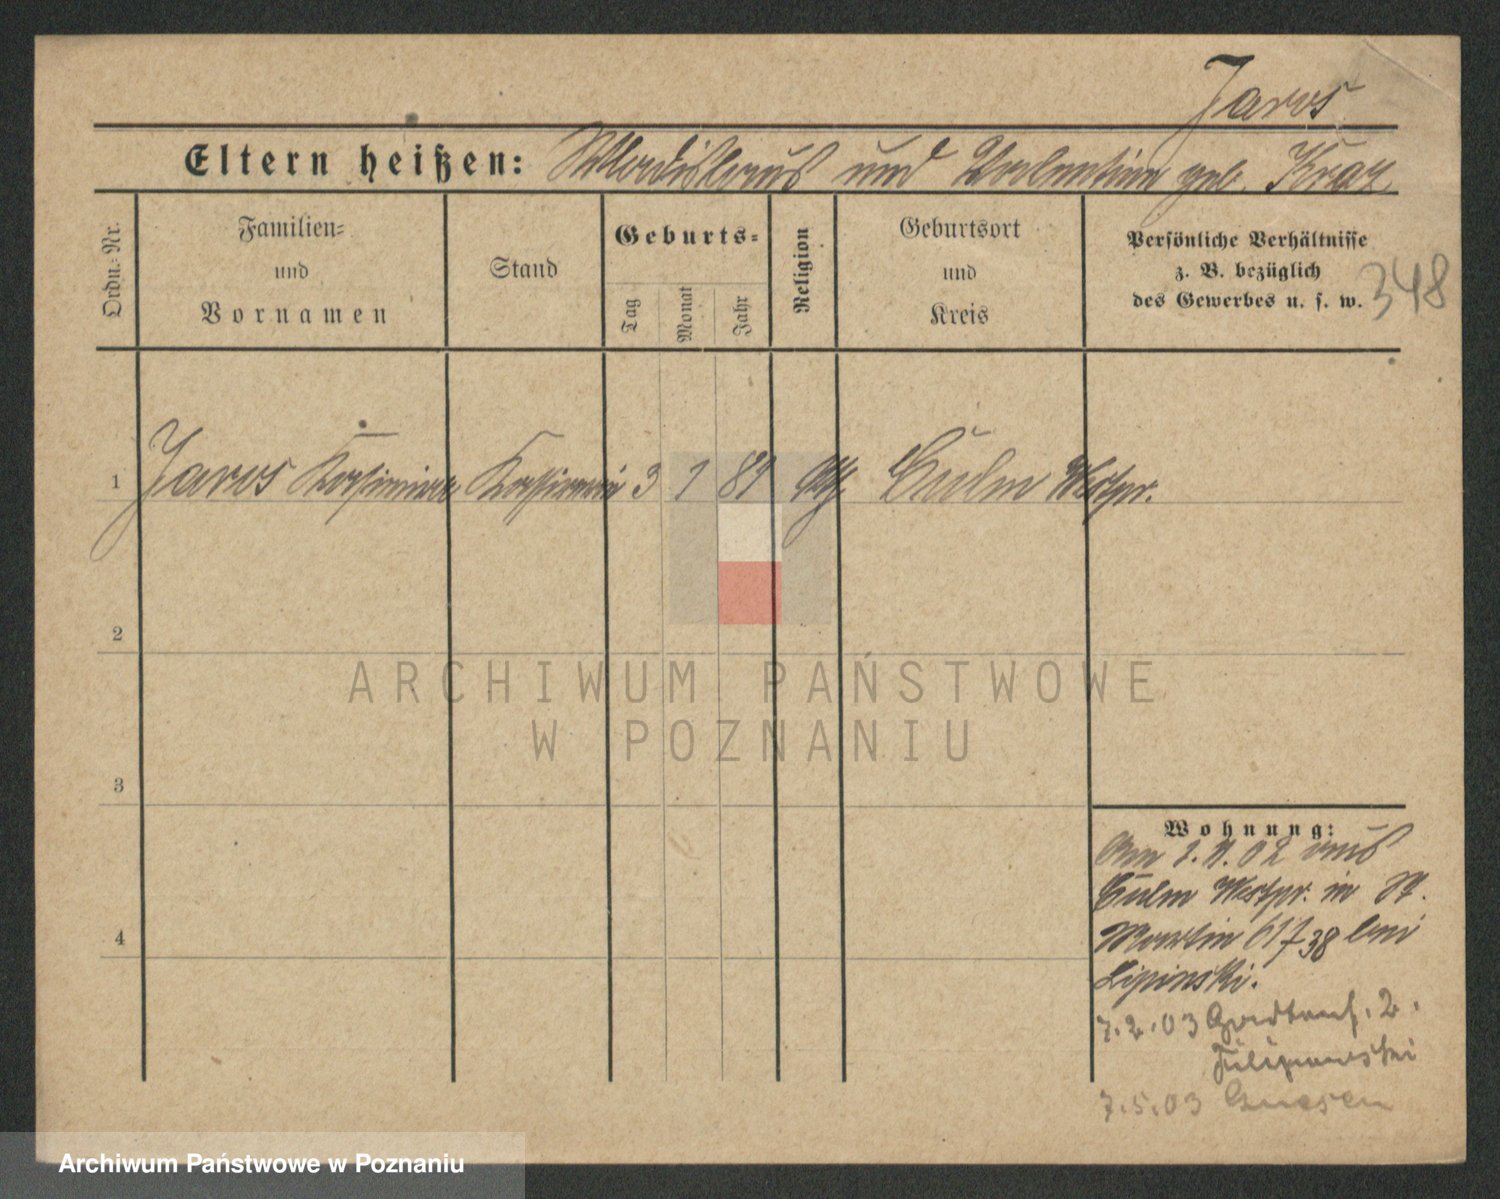 Jaros
Eltern heißen: Wladislaus und Valentine geb. Kray
Ordn.-Nr.
Familien-
und
Vornamen
Stand
Geburts-
Tag
Monat
Jahr
Religion
Geburtsort
und
Kreis
Persönliche Verhältnisse
z. B. bezüglich
des Gewerbes u. s. w.
348
1 Jaros Kasimira 3 1 81 Culm Westpr.
2
3
4
Wohnung:
Am 1.4.02 aus
Culm Westpr. in St.
Martin 61 38 bei
Lipinski.
7.2.03 2.
Filipowski
7.5.03 Gnesen
ARCHIWUM PAŃSTWOWE
W POZNANIU
Archiwum Państwowe w Poznaniu